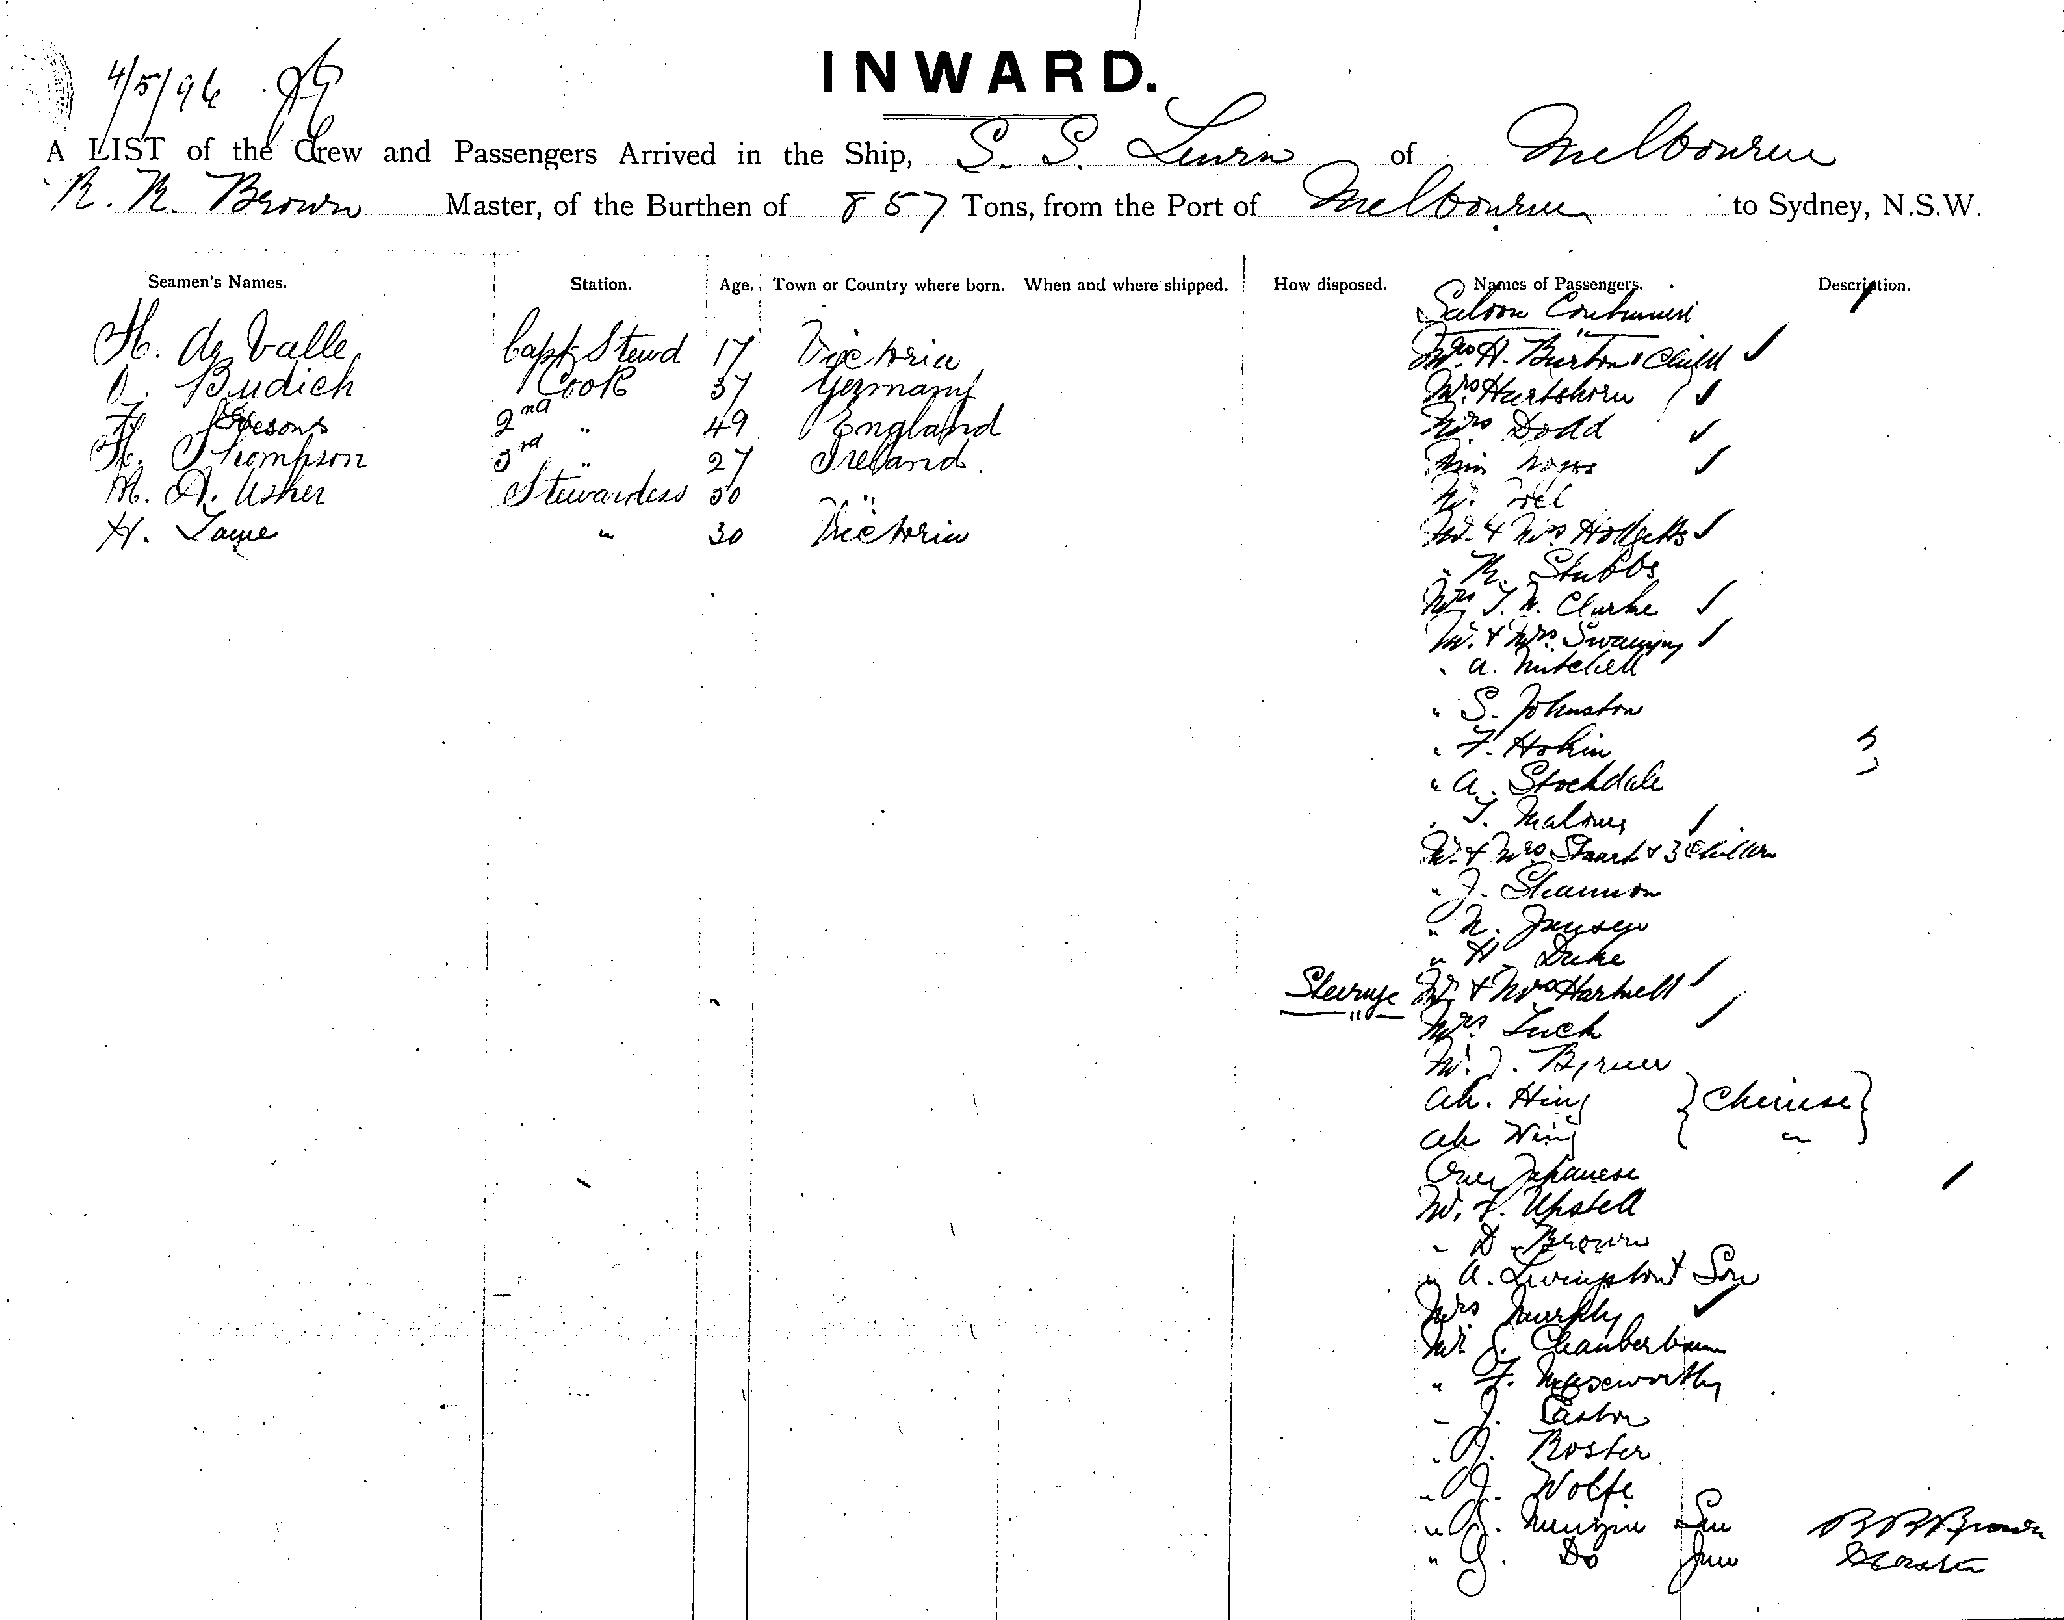 4/5/96
INWARD.
A LIST of the Crew and Passengers Arrived in the Ship, S. S. of Melbourne
R. R. Brown Master, of the Burthen of 857 Tons, from the Port of Melbourne to Sydney, N.S.W.
Seamen's Names. Station. Age. Town or Country where born. When and where shipped. How disposed. Names of Passengers. Description.
Saloon Continued
H. de Valle Capt Stewd 17 Victoria
Budich Cook 37 Germany
2nd " 49 England
H. Thompson 3rd " 27 Ireland.
M. A. Usher Stewardess 30 "
H. " 30 Victoria
Mrs H. Burton & Child
Mrs Hartshorn
Mrs Dodd
Miss
Mr.
Mr. & Mrs
" R. Stubbs
Mrs T. N. Clarke
Mr. & Mrs
" A. Mitchell
" S. Johnston
" F. Hokin
" A. Stockdale
" T. Malone
Mr. & Mrs Stuart & 3 Children
" J. Shannon
" N. Jansen
" H. Duke
Steerage Mr & Mrs Hartnell
Mrs Tuck
Mr. J. Byrne
Ah. Hing } Chinese }
Ah Wing "
One Japanese
Mr. F. Upstell
" D. Brown
" A. Livingston & Son
Mrs Murphy
Mr J. Chamberlain
" F.
" J. Easton
" J. Roster
" J. Wolfe
" J. Menzies Sen R R Brown
" G. Do Jun Master